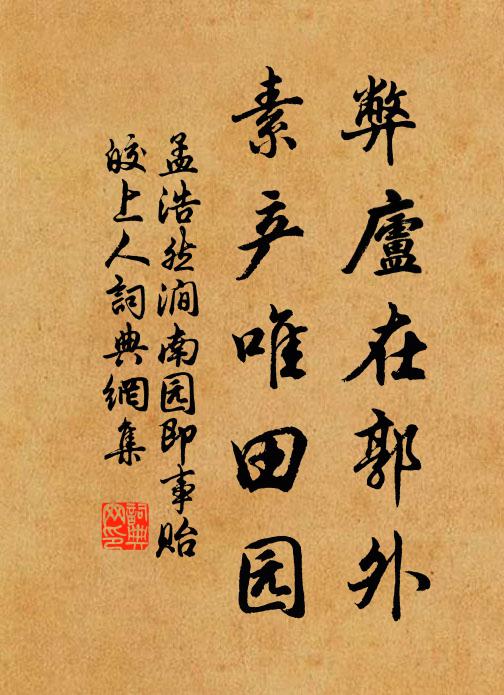 弊廬在郭外
素产唯田园
孟浩然澗南园即事貽
皎上人詞典網集
詞典
网印